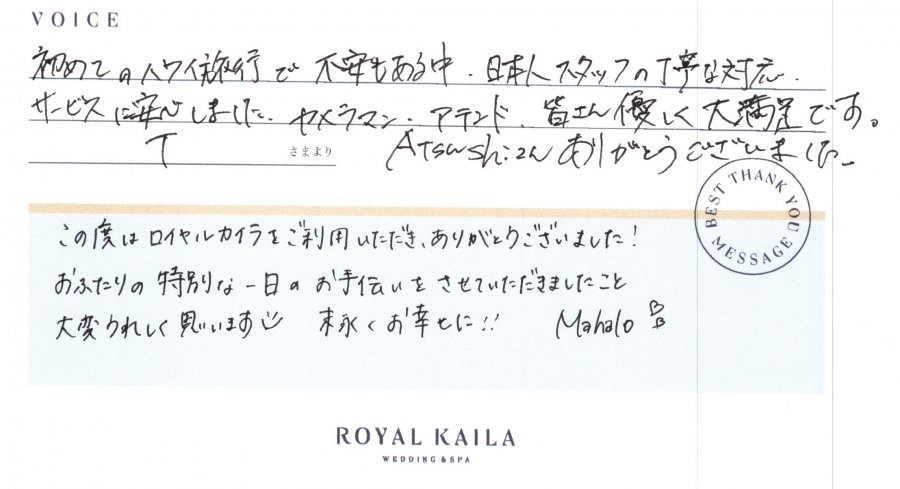 VOICE
初めてのハワイ旅行で不安もある中、日本人スタッフの丁寧な対応、
サービスに安心しました。カメラマン・アテンド、皆さん優しく大満足です。
T さまより Atsushiさんありがとうございました。
BEST THANK YOU MESSAGE
この度はロイヤルカイラをご利用いただき、ありがとうございました!
おふたりの特別な一日のお手伝いをさせていただきましたこと
大変うれしく思います 末永くお幸せに!! Mahalo
ROYAL KAILA
WEDDING & SPA